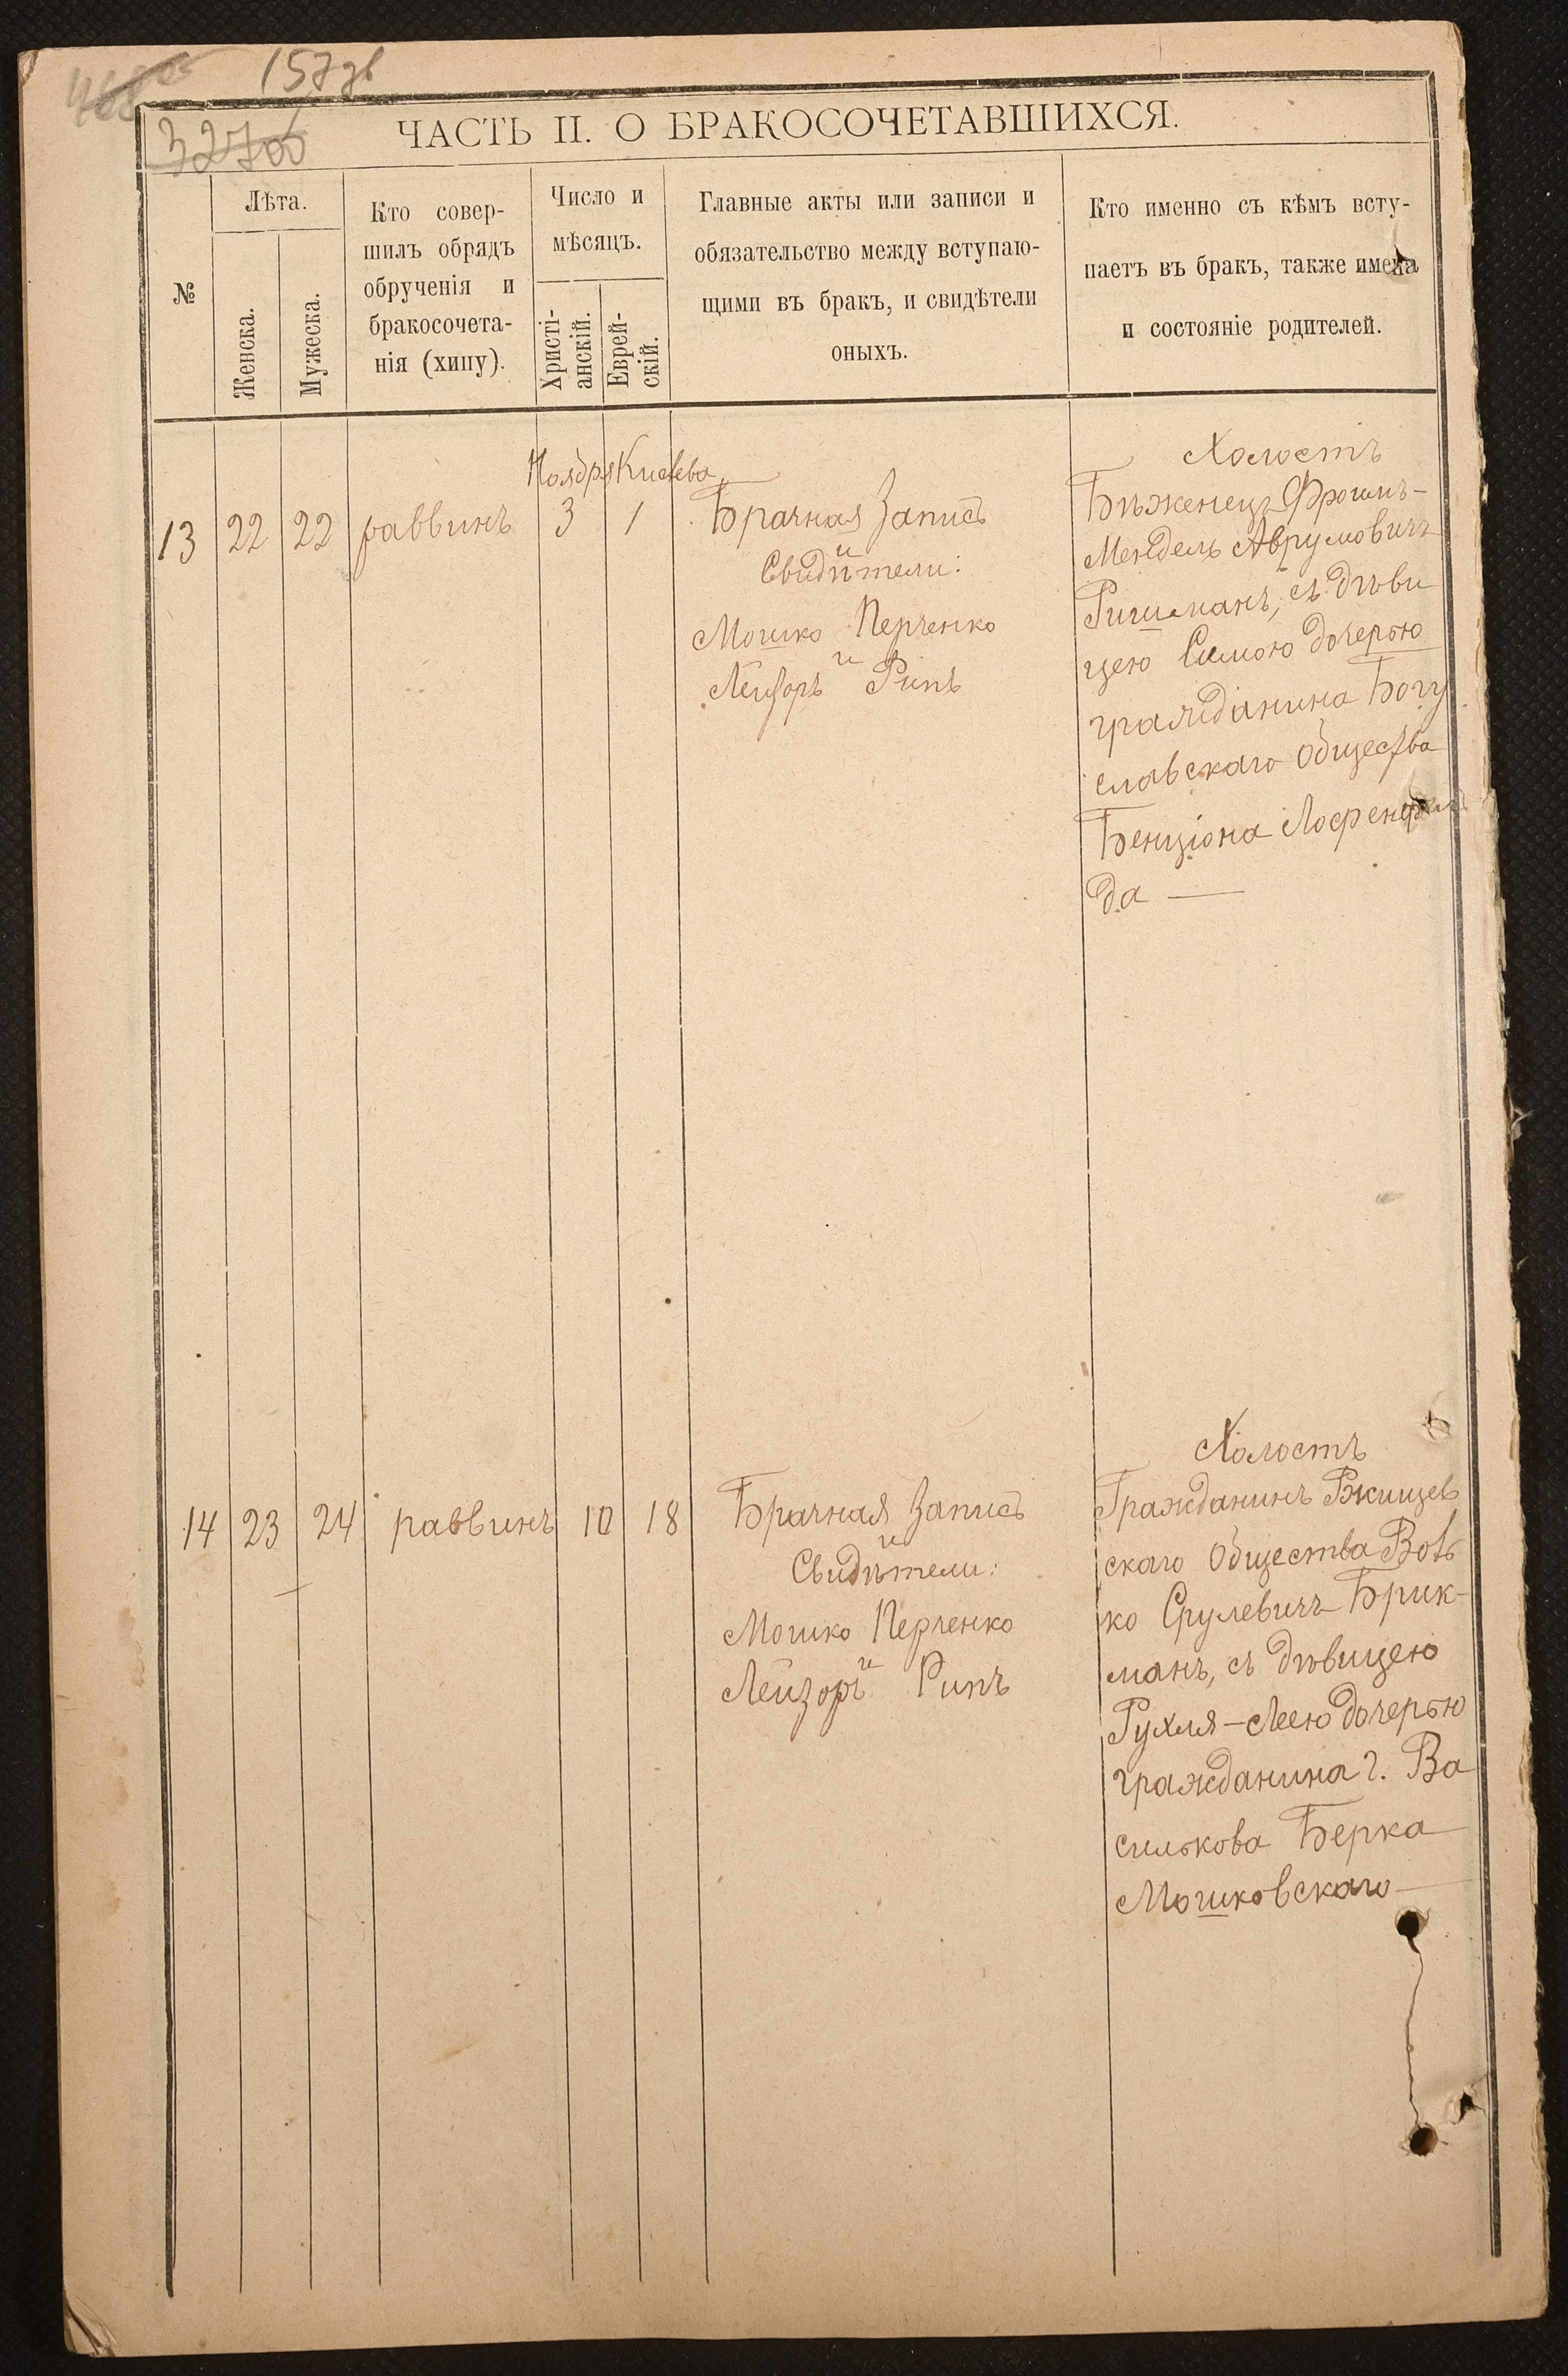 157 зв
ЧАСТЬ II. О БРАКОСОЧЕТАВШИХСЯ.
№
Лѣта.
Женска.
Мужеска.
Кто совер-
шилъ обрядъ
обрученія и
бракосочета-
нія (хипу).
Число и
мѣсяцъ.
Христі-
анскій.
Еврей-
скій.
Главные акты или записи и
обязательство между вступаю-
щими въ бракъ, и свидѣтели
оныхъ.
Кто именно съ кѣмъ всту-
паетъ въ бракъ, также имена
и состояніе родителей.
Ноября Кислева
13 22 22 раввинъ 3 1
Брачная Запись
и
Свидѣтели:
Мошко Перченко
и
Лейзоръ Рипъ
Холостъ
Бѣженецъ Фроимъ-
Мендель Аврумовичъ
Ришманъ, съ дѣви
цею Симою дочерью
гражданина Богу
славскаго Общества
Бенціона
да —
14 23 24 раввинъ 10 18
Брачная Запись
и
Свидѣтели:
Мошко Перченко
и
Лейзоръ Рипъ
Холостъ
Гражданинъ Ржищев
скаго Общества Воль
ко Срулевичъ Брик-
манъ, съ дѣвицею
Рухля-Леею дочерью
гражданина г. Ва
силькова Берка
Мошковскаго —